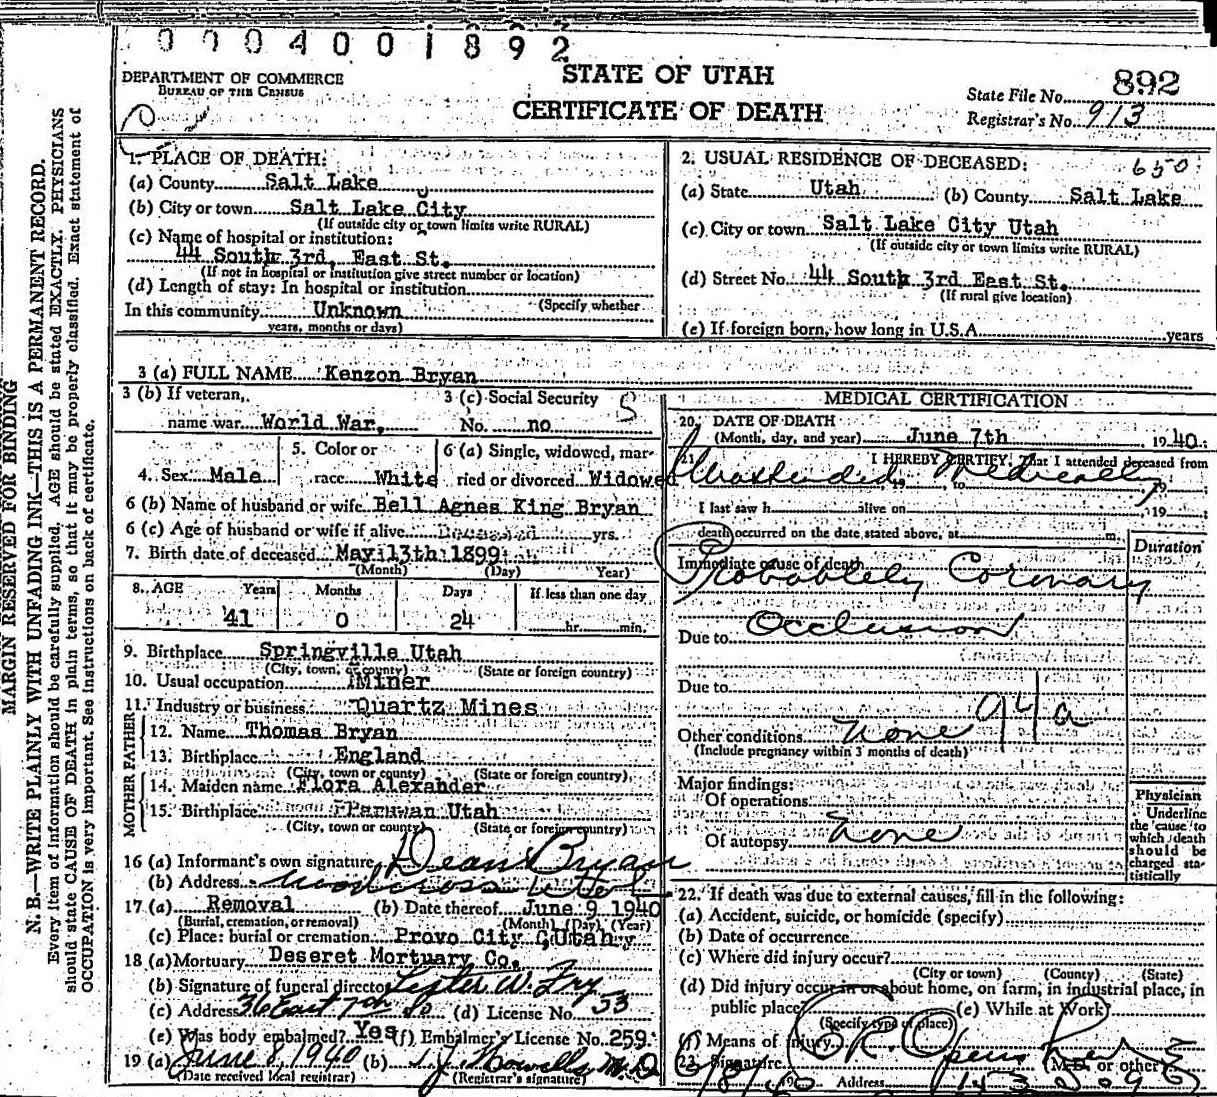 0 0 0 4 0 0 1 8 9 2
DEPARTMENT OF COMMERCE
BUREAU OF THE CENSUS
STATE OF UTAH
CERTIFICATE OF DEATH
State File No. 892
Registrar's No. 913
1. PLACE OF DEATH:
(a) County Salt Lake
(b) City or town Salt Lake City
(If outside city or town limits write RURAL)
(c) Name of hospital or institution:
44 South 3rd, East St.
(If not in hospital or institution give street number or location)
(d) Length of stay: In hospital or institution
(Specify whether
In this community Unknown
years, months or days)
2. USUAL RESIDENCE OF DECEASED: 650
(a) State Utah (b) County Salt Lake
(c) City or town Salt Lake City Utah
(If outside city or town limits write RURAL)
(d) Street No. 44 South 3rd East St.
(If rural give location)
(e) If foreign born, how long in U.S.A. years
3 (a) FULL NAME Kenzon Bryan
3 (b) If veteran, 3 (c) Social Security
name war World War, No. no
4. Sex Male
5. Color or race White
6 (a) Single, widowed, married or divorced Widowed
6 (b) Name of husband or wife Bell Agnes King Bryan
6 (c) Age of husband or wife if alive Deceased yrs.
7. Birth date of deceased May 13th 1899
(Month) (Day) Year)
8. AGE Years Months Days If less than one day
41 0 24 hr. min.
9. Birthplace Springville Utah
(City, town, or county) (State or foreign country)
10. Usual occupation Miner
11. Industry or business Quartz Mines
FATHER
12. Name Thomas Bryan
13. Birthplace England
(City, town or county) (State or foreign country)
MOTHER
14. Maiden name Flora Alexander
15. Birthplace Parowan Utah
(City, town or county) (State or foreign country)
16 (a) Informant's own signature Dean Bryan
(b) Address Woodcross Utah
17 (a) Removal (b) Date thereof June 9 1940
(Burial, cremation, or removal) (Month) (Day) (Year)
(c) Place: burial or cremation Provo City Utah
18 (a) Mortuary Deseret Mortuary Co.
(b) Signature of funeral director Lester W. Fry
(c) Address 36 East 7th So (d) License No. 53
(e) Was body embalmed? Yes (f) Embalmer's License No. 259
19 (a) June 8, 1940 (b) T. J. Howells M. D
(Date received local registrar) (Registrar's signature)
MEDICAL CERTIFICATION
20. DATE OF DEATH
(Month, day, and year) June 7th, 1940
21. I HEREBY CERTIFY, That I attended deceased from
Unattended Medically
, 19 , to , 19 ;
I last saw h alive on , 19 ;
death occurred on the date stated above, at m.
Immediate cause of death Duration
Probablely Coronary
Due to Occlusion
Due to
94a
Other conditions None
(Include pregnancy within 3 months of death)
Major findings:
Of operations
Of autopsy None
Physician
Underline the cause to which death should be charged statistically
22. If death was due to external causes, fill in the following:
(a) Accident, suicide, or homicide (specify)
(b) Date of occurrence
(c) Where did injury occur?
(City or town) (County) (State)
(d) Did injury occur in or about home, on farm, in industrial place, in
public place (e) While at Work
(Specify type of place)
(f) Means of Injury
23. Signature (M.D. or other)
Address
MARGIN RESERVED FOR BINDING
N. B.—WRITE PLAINLY WITH UNFADING INK—THIS IS A PERMANENT RECORD.
Every item of information should be carefully supplied. AGE should be stated EXACTLY. PHYSICIANS
should state CAUSE OF DEATH in plain terms, so that it may be properly classified. Exact statement of
OCCUPATION is very important. See instructions on back of certificate.